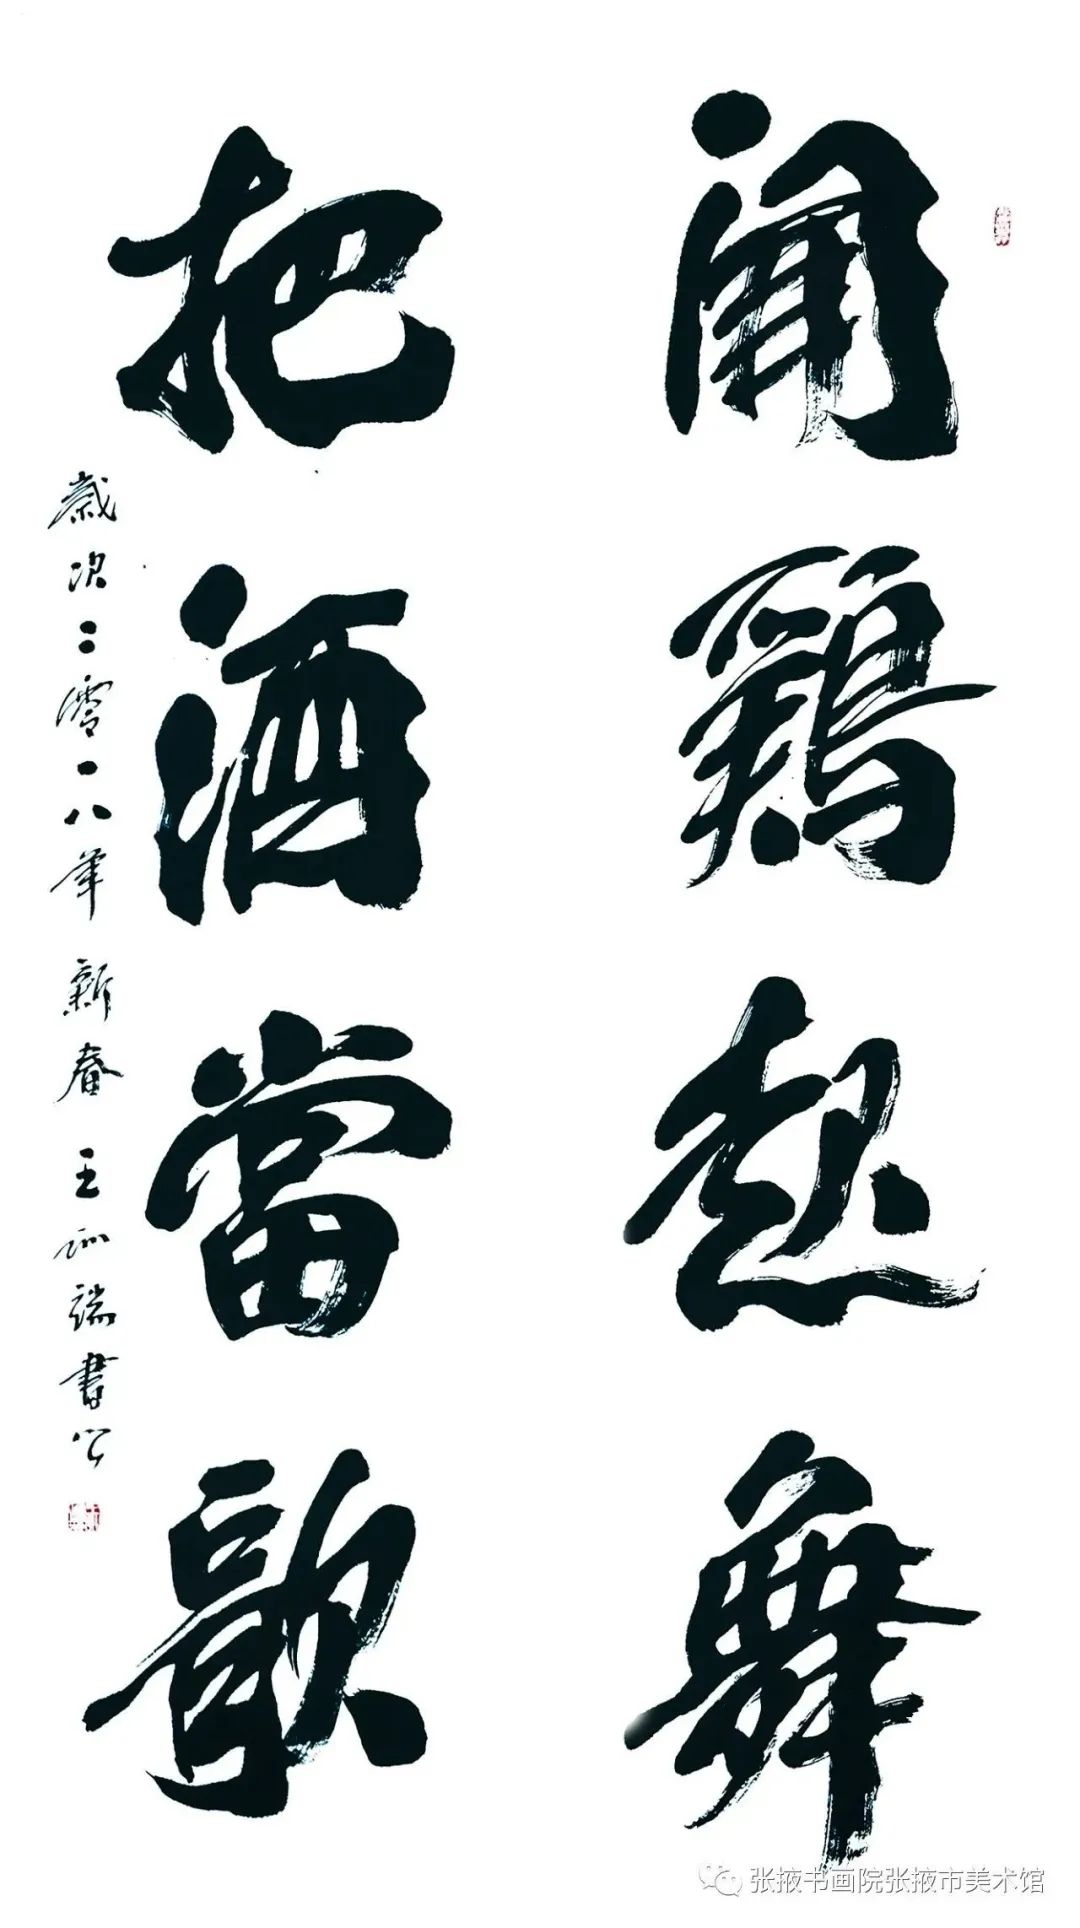 闻鷄起舞
把酒當歌
歲次二零一八年新春王训端書
张掖书画院张掖市美术馆